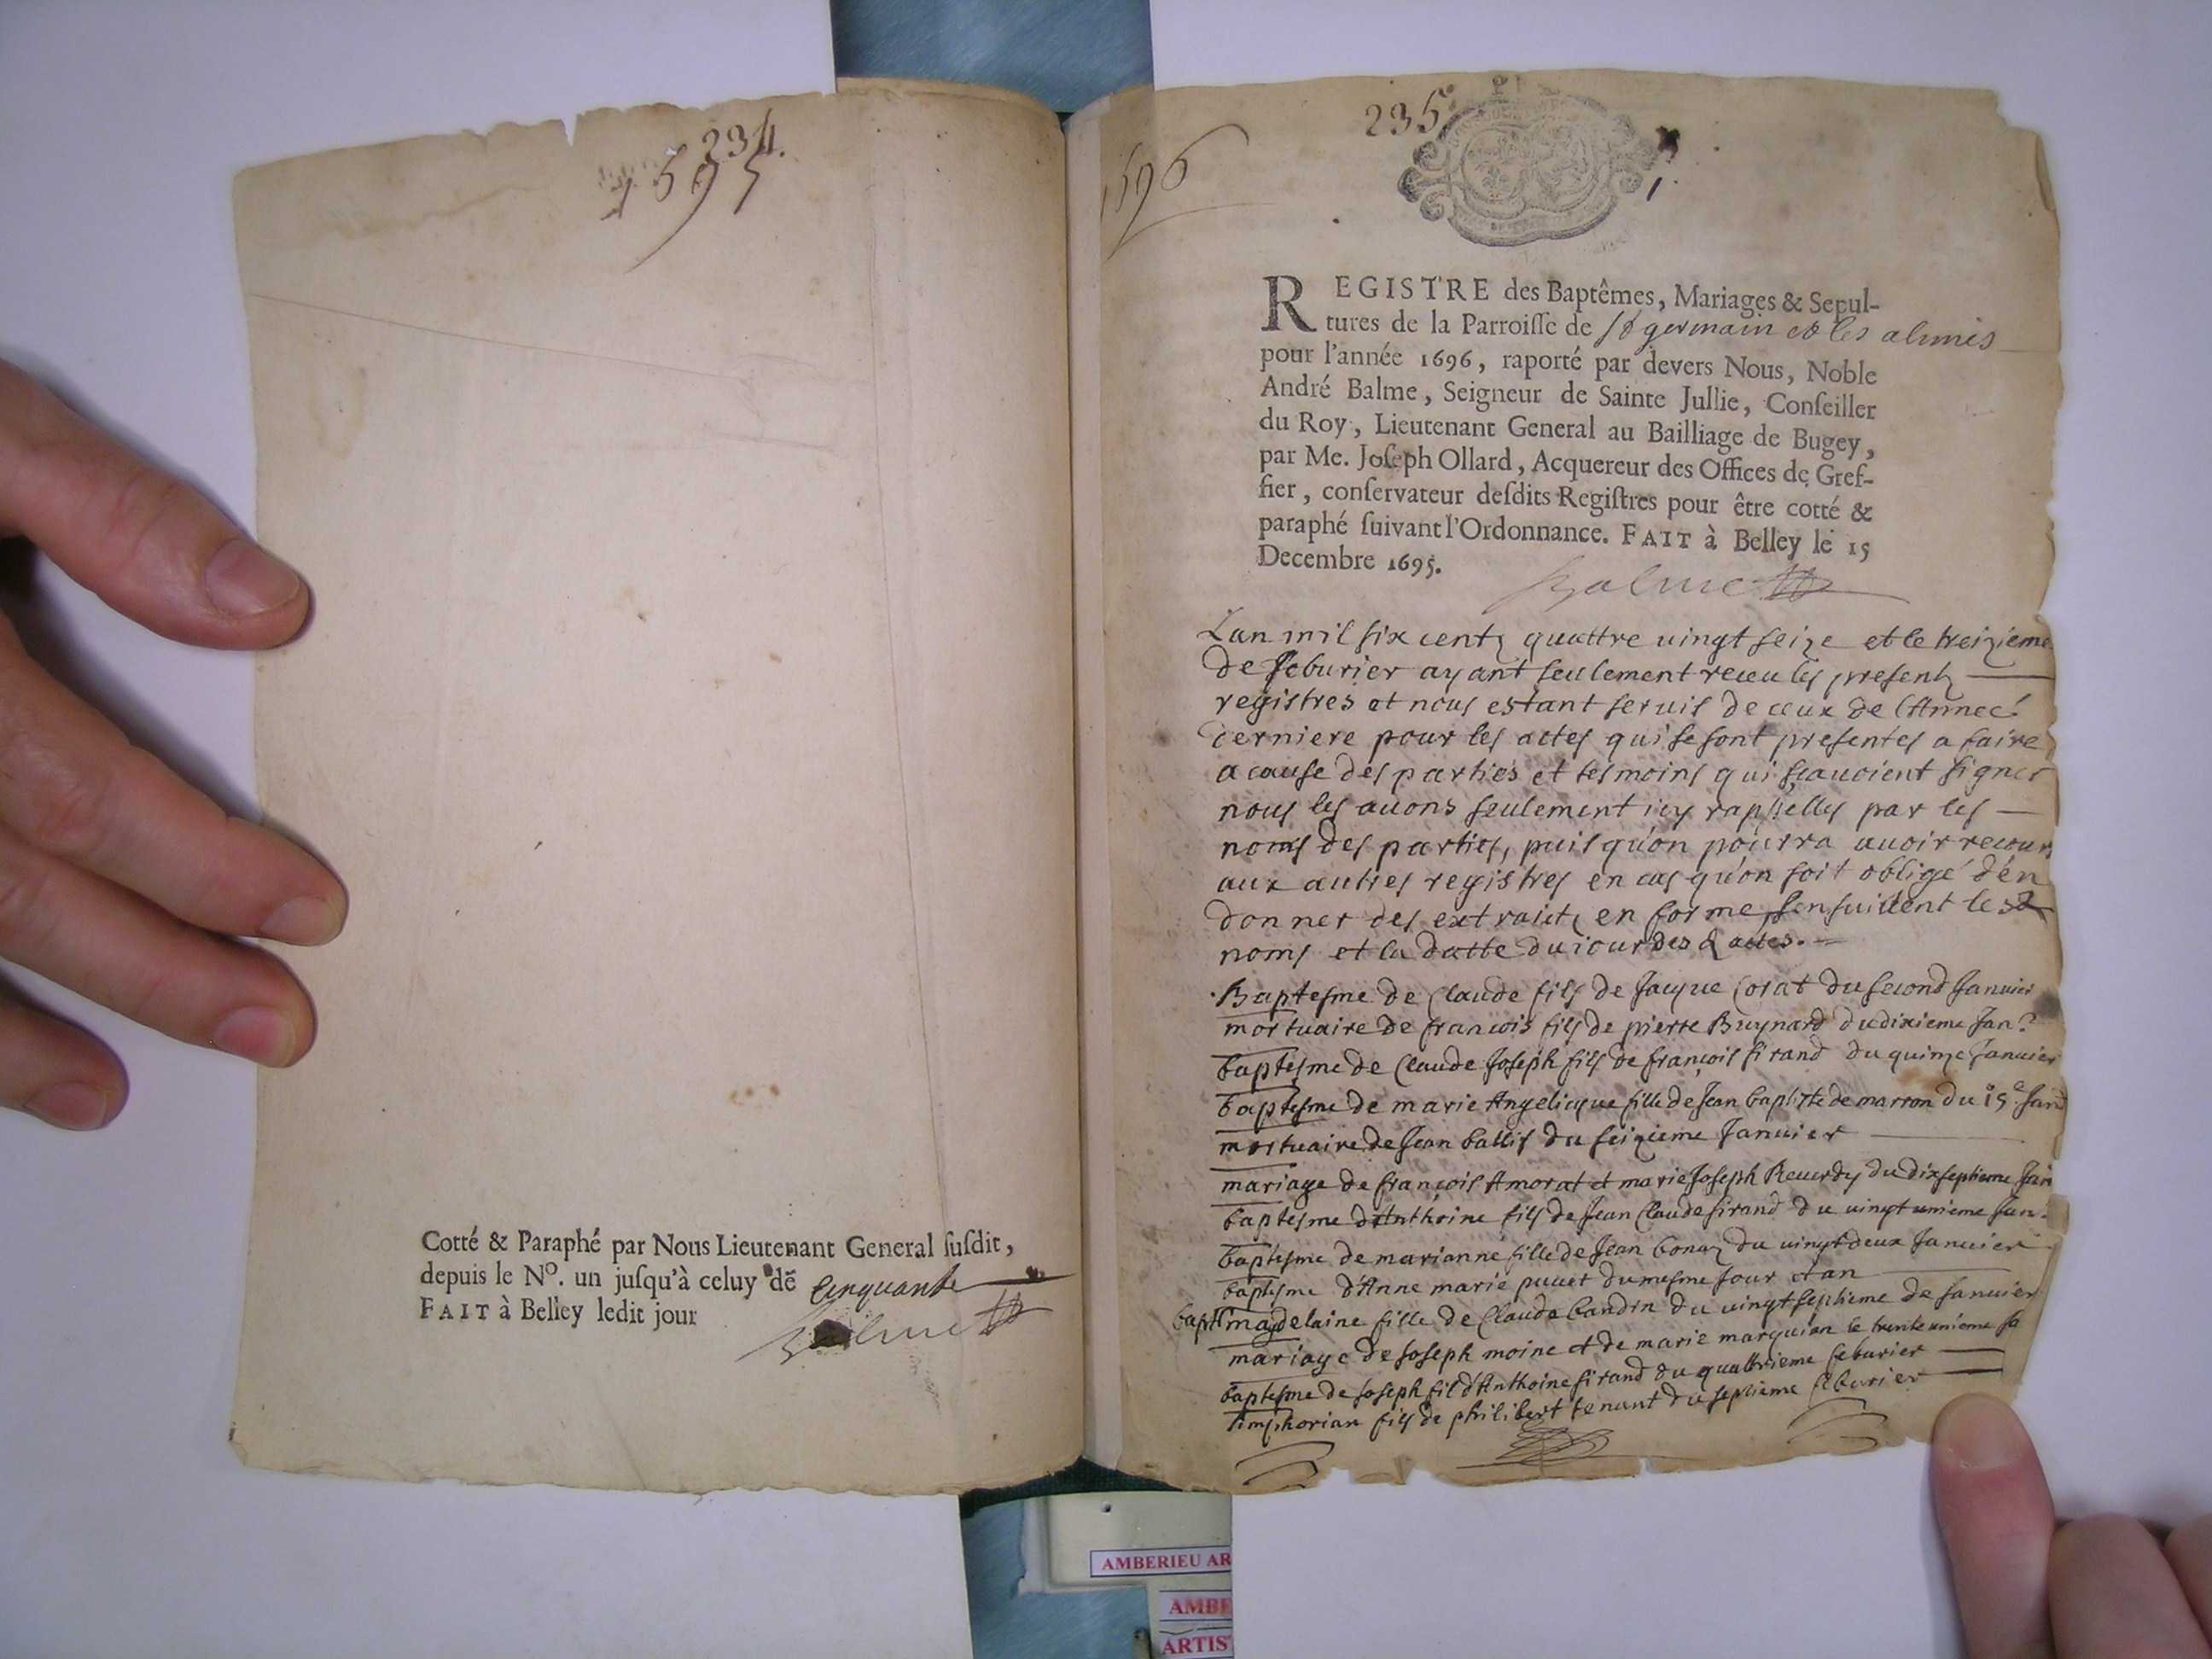 234.
1695
Cotté & Paraphé par Nous Lieutenant General ſuſdit,
depuis le Nº. un juſqu'à celuy de Cinquante
FAIT à Belley ledit jour
Balme
1696
235
1.
REGISTRE des Baptêmes, Mariages & Sepul-
tures de la Parroiſſe de St germain et les alimes
pour l'année 1696, raporté par devers Nous, Noble
André Balme, Seigneur de Sainte Jullie, Conſeiller
du Roy, Lieutenant General au Bailliage de Bugey,
par Me. Joſeph Ollard, Acquereur des Offices de Gref-
fier, conſervateur deſdits Regiſtres pour être cotté &
paraphé ſuivant l'Ordonnance. FAIT à Belley le 15
Decembre 1695.
Balme
Lan mil six centz quattre vingt seize et le treizieme
de feburier ayant seulement receu les presentz
registres et nous estant seruis de ceux de lAnneé
derniere pour les actes qui se sont presentes a faire
a cause des parties et tesmoins qui scauoient signer
nous les auons seulement icy rappelles par les
noms des parties, puis qu'on pourra auoir recours
aux autres registres en cas qu'on soit obligé d'en
donner des extraictz en forme, sensuiuent les
noms et la datte du iour des actes.
Baptesme de Claude fils de Jacque Corat du second Januier
mortuaire de francois fils de pierre Buynard du dixieme Jan?
baptesme de Claude Joseph fils de françois sirand du quinze Januier
baptesme de marie Angelicque fille de Jean baptiste de marron du 15e Janu
mortuaire de Jean ballif du seizieme Januier
mariage de françois Amorat et marie Joseph Reuerdy du dixseptieme Jan
baptesme dAnthoine fils de Jean Claude sirand du uingt unieme Jan.
baptesme de marianne fille de Jean bonaz du uingt deux Januier
baptesme d'Anne marie puuet du mesme Jour et an
bapt magdelaine fille de Claude Candin du uingt septieme de Januier
mariage de Joseph moine et de marie marquian le trente unieme Ja
baptesme de Joseph fil d'Anthoine sirand du quattrieme feburier
simphorian fils de philibert tenant du septieme feburier
AMBERIEU AR
AMBE
ARTIS